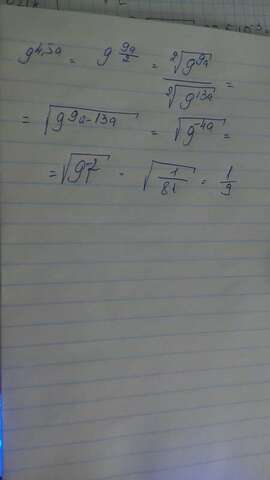 9^{4,5a} = 9^{\frac{9a}{2}} = \frac{\sqrt[2]{9^{9a}}}{\sqrt[2]{9^{13a}}} =
= \sqrt{9^{9a-13a}} = \sqrt{9^{-4a}} =
= \sqrt{9^{-2}} = \sqrt{\frac{1}{81}} = \frac{1}{9}